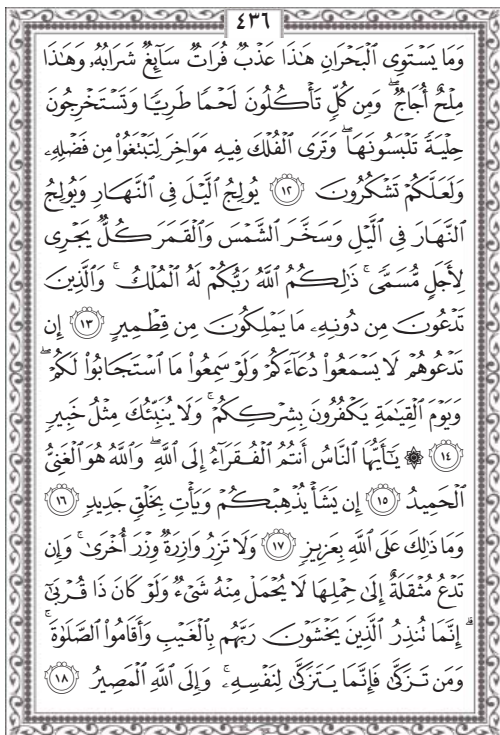 ٤٣٦
وَمَا يَسْتَوِى ٱلْبَحْرَانِ هَٰذَا عَذْبٌ فُرَاتٌ سَآئِغٌ شَرَابُهُۥ وَهَٰذَا
مِلْحٌ أُجَاجٌ ۖ وَمِن كُلٍّ تَأْكُلُونَ لَحْمًا طَرِيًّا وَتَسْتَخْرِجُونَ
حِلْيَةً تَلْبَسُونَهَا ۖ وَتَرَى ٱلْفُلْكَ فِيهِ مَوَاخِرَ لِتَبْتَغُوا۟ مِن فَضْلِهِۦ
وَلَعَلَّكُمْ تَشْكُرُونَ ١٢ يُولِجُ ٱلَّيْلَ فِى ٱلنَّهَارِ وَيُولِجُ
ٱلنَّهَارَ فِى ٱلَّيْلِ وَسَخَّرَ ٱلشَّمْسَ وَٱلْقَمَرَ كُلٌّ يَجْرِى
لِأَجَلٍ مُّسَمًّى ۚ ذَٰلِكُمُ ٱللَّهُ رَبُّكُمْ لَهُ ٱلْمُلْكُ ۚ وَٱلَّذِينَ
تَدْعُونَ مِن دُونِهِۦ مَا يَمْلِكُونَ مِن قِطْمِيرٍ ١٣ إِن
تَدْعُوهُمْ لَا يَسْمَعُوا۟ دُعَآءَكُمْ وَلَوْ سَمِعُوا۟ مَا ٱسْتَجَابُوا۟ لَكُمْ ۖ
وَيَوْمَ ٱلْقِيَٰمَةِ يَكْفُرُونَ بِشِرْكِكُمْ ۚ وَلَا يُنَبِّئُكَ مِثْلُ خَبِيرٍ
١٤ ۞ يَٰٓأَيُّهَا ٱلنَّاسُ أَنتُمُ ٱلْفُقَرَآءُ إِلَى ٱللَّهِ ۖ وَٱللَّهُ هُوَ ٱلْغَنِىُّ
ٱلْحَمِيدُ ١٥ إِن يَشَأْ يُذْهِبْكُمْ وَيَأْتِ بِخَلْقٍ جَدِيدٍ ١٦
وَمَا ذَٰلِكَ عَلَى ٱللَّهِ بِعَزِيزٍ ١٧ وَلَا تَزِرُ وَازِرَةٌ وِزْرَ أُخْرَىٰ ۚ وَإِن
تَدْعُ مُثْقَلَةٌ إِلَىٰ حِمْلِهَا لَا يُحْمَلْ مِنْهُ شَىْءٌ وَلَوْ كَانَ ذَا قُرْبَىٰٓ
ۗ إِنَّمَا تُنذِرُ ٱلَّذِينَ يَخْشَوْنَ رَبَّهُم بِٱلْغَيْبِ وَأَقَامُوا۟ ٱلصَّلَوٰةَ ۚ
وَمَن تَزَكَّىٰ فَإِنَّمَا يَتَزَكَّىٰ لِنَفْسِهِۦ ۚ وَإِلَى ٱللَّهِ ٱلْمَصِيرُ ١٨